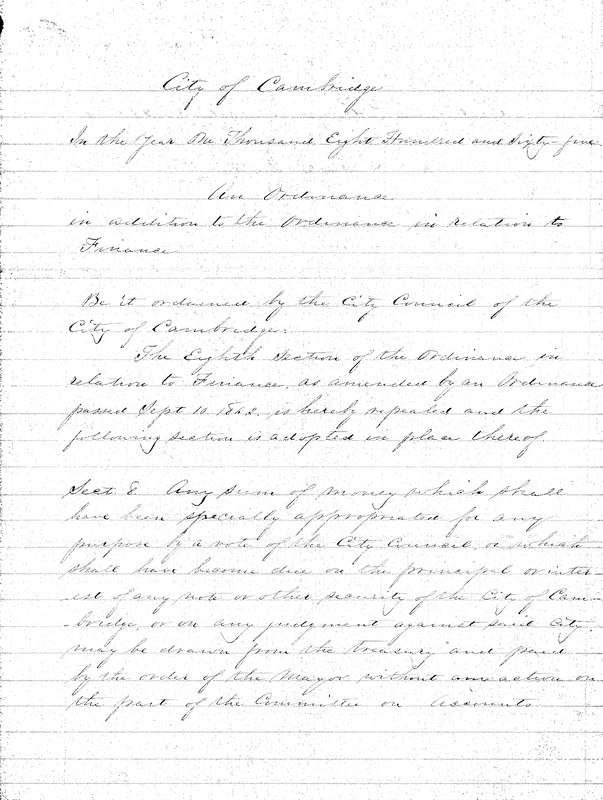 City of Cambridge
In the Year One Thousand Eight Hundred and Sixty-five
An Ordinance
in addition to the Ordinance in relation to
Finance.
Be it ordained by the City Council of the
City of Cambridge:
The Eighth Section of the Ordinance in
relation to Finance, as amended by an Ordinance
passed Sept 10. 1862, is hereby repealed and the
following section is adopted in place thereof
Sect. 8. Any sum of money which shall
have been specially appropriated for any
purpose by a vote of the City Council, or which
shall have become due on the principal or inter-
-est of any note or other security of the City of Cam-
-bridge, or on any judgment against said City,
may be drawn from the treasury and paid
by the order of the Mayor without action on
the part of the Committee on Accounts